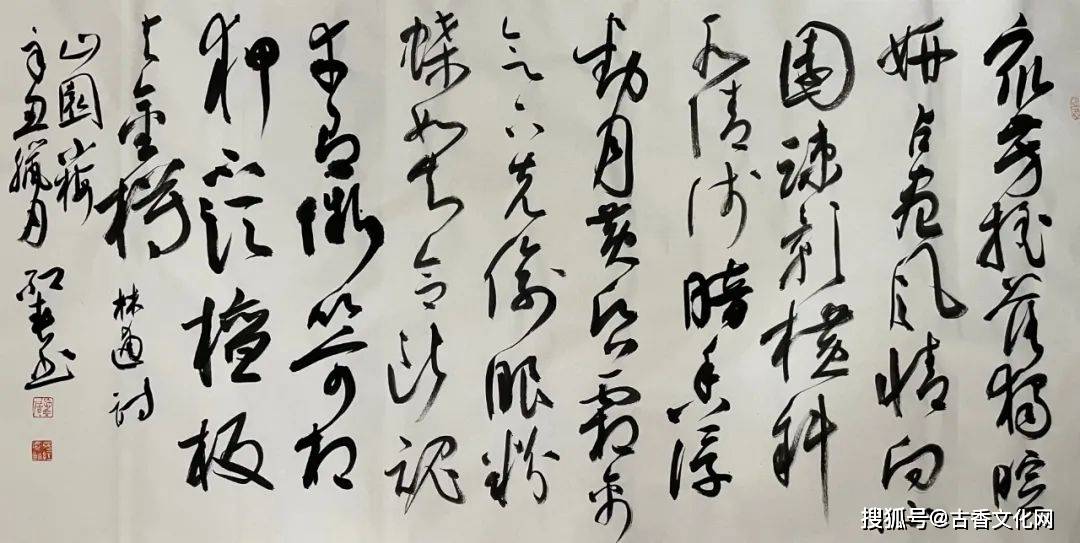 众芳摇落獨暄
妍占尽风情向小
園疎影横斜
水清浅暗香浮
動月黄昏霜禽
欲下先偷眼粉
蝶如知合断魂
幸有微吟可相
狎不须檀板
共金樽 林逋诗
山園小梅
辛丑臘月
搜狐号@古香文化网